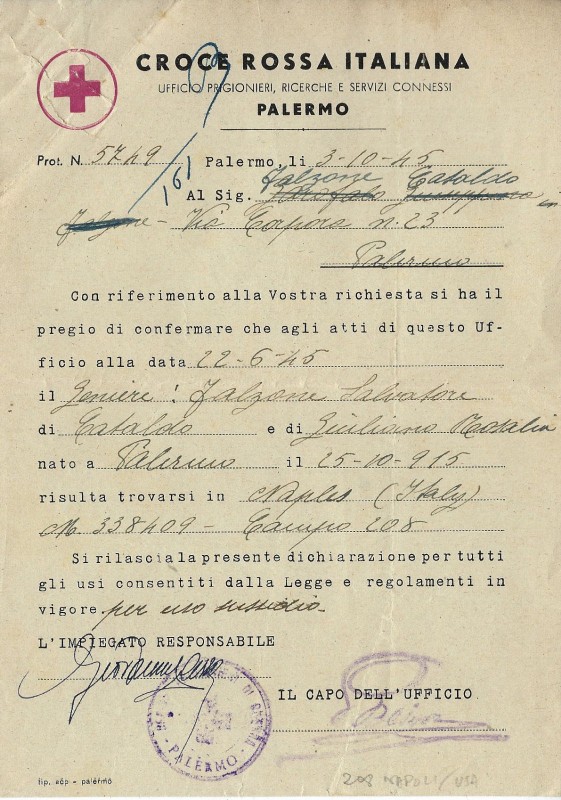 CROCE ROSSA ITALIANA
UFFICIO PRIGIONIERI, RICERCHE E SERVIZI CONNESSI
PALERMO
Prot. N. 5749 Palermo, li 3-10-45
161
Falzone Cataldo
Al Sig.
Falzone - Via Corpora n. 23
Palermo
Con riferimento alla Vostra richiesta si ha il
pregio di confermare che agli atti di questo Uf-
ficio alla data 22-6-45
il Geniere: Falzone Salvatore
di Cataldo e di Giuliano Rosalia
nato a Palermo il 25-10-915
risulta trovarsi in Naples (Italy)
M. 338409 - Campo 208
Si rilascia la presente dichiarazione per tutti
gli usi consentiti dalla Legge e regolamenti in
vigore per uso sussidio.
L'IMPIEGATO RESPONSABILE
IL CAPO DELL'UFFICIO
PALERMO
tip. adp - palermo
208 NAPOLI/USA